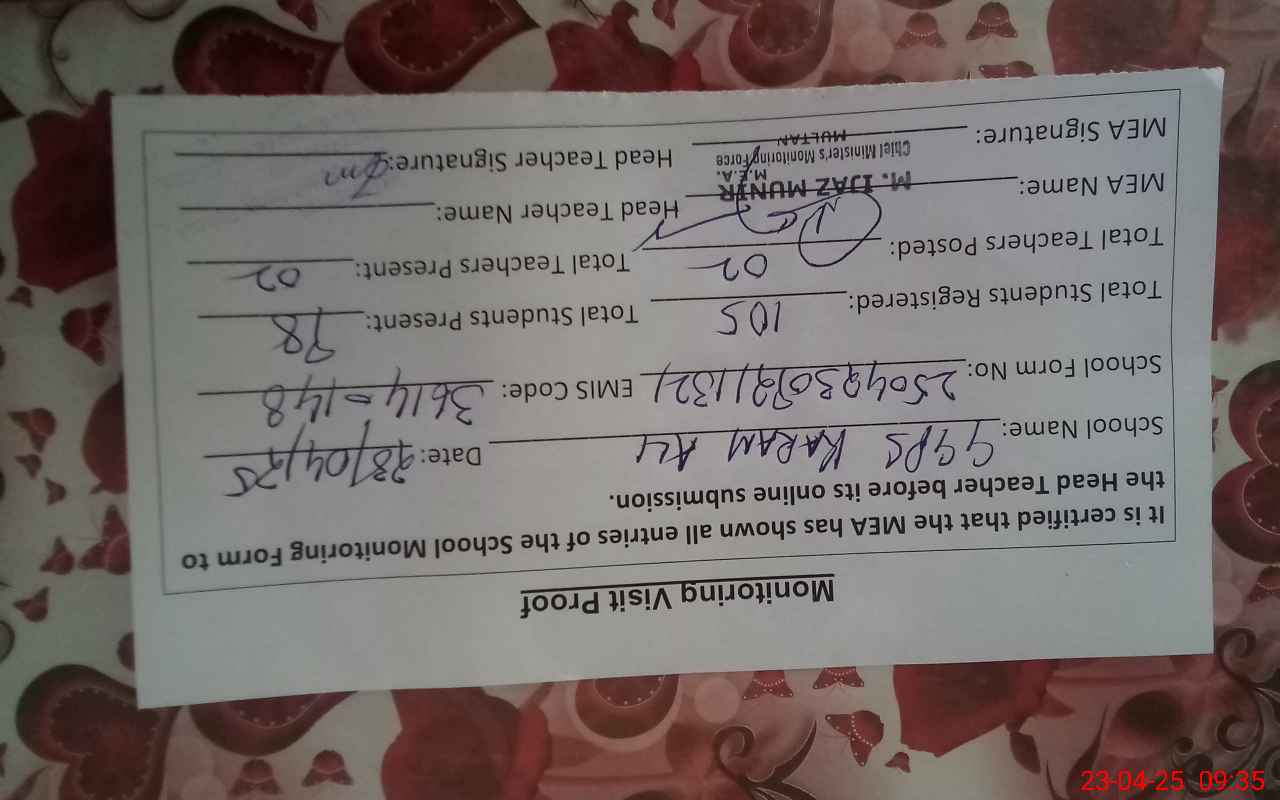 Monitoring Visit Proof
It is certified that the MEA has shown all entries of the School Monitoring Form to
the Head Teacher before its online submission.
School Name: GGPS KARAM ALI Date: 23/04/25
School Form No: EMIS Code: 3614-148
Total Students Registered: 105 Total Students Present: 98
Total Teachers Posted: 02 Total Teachers Present: 02
MEA Name: M. IJAZ MUNIR Head Teacher Name:
M.E.A.
Chief Minister's Monitoring Force
MULTAN
MEA Signature: Head Teacher Signature:
23-04-25 09:35